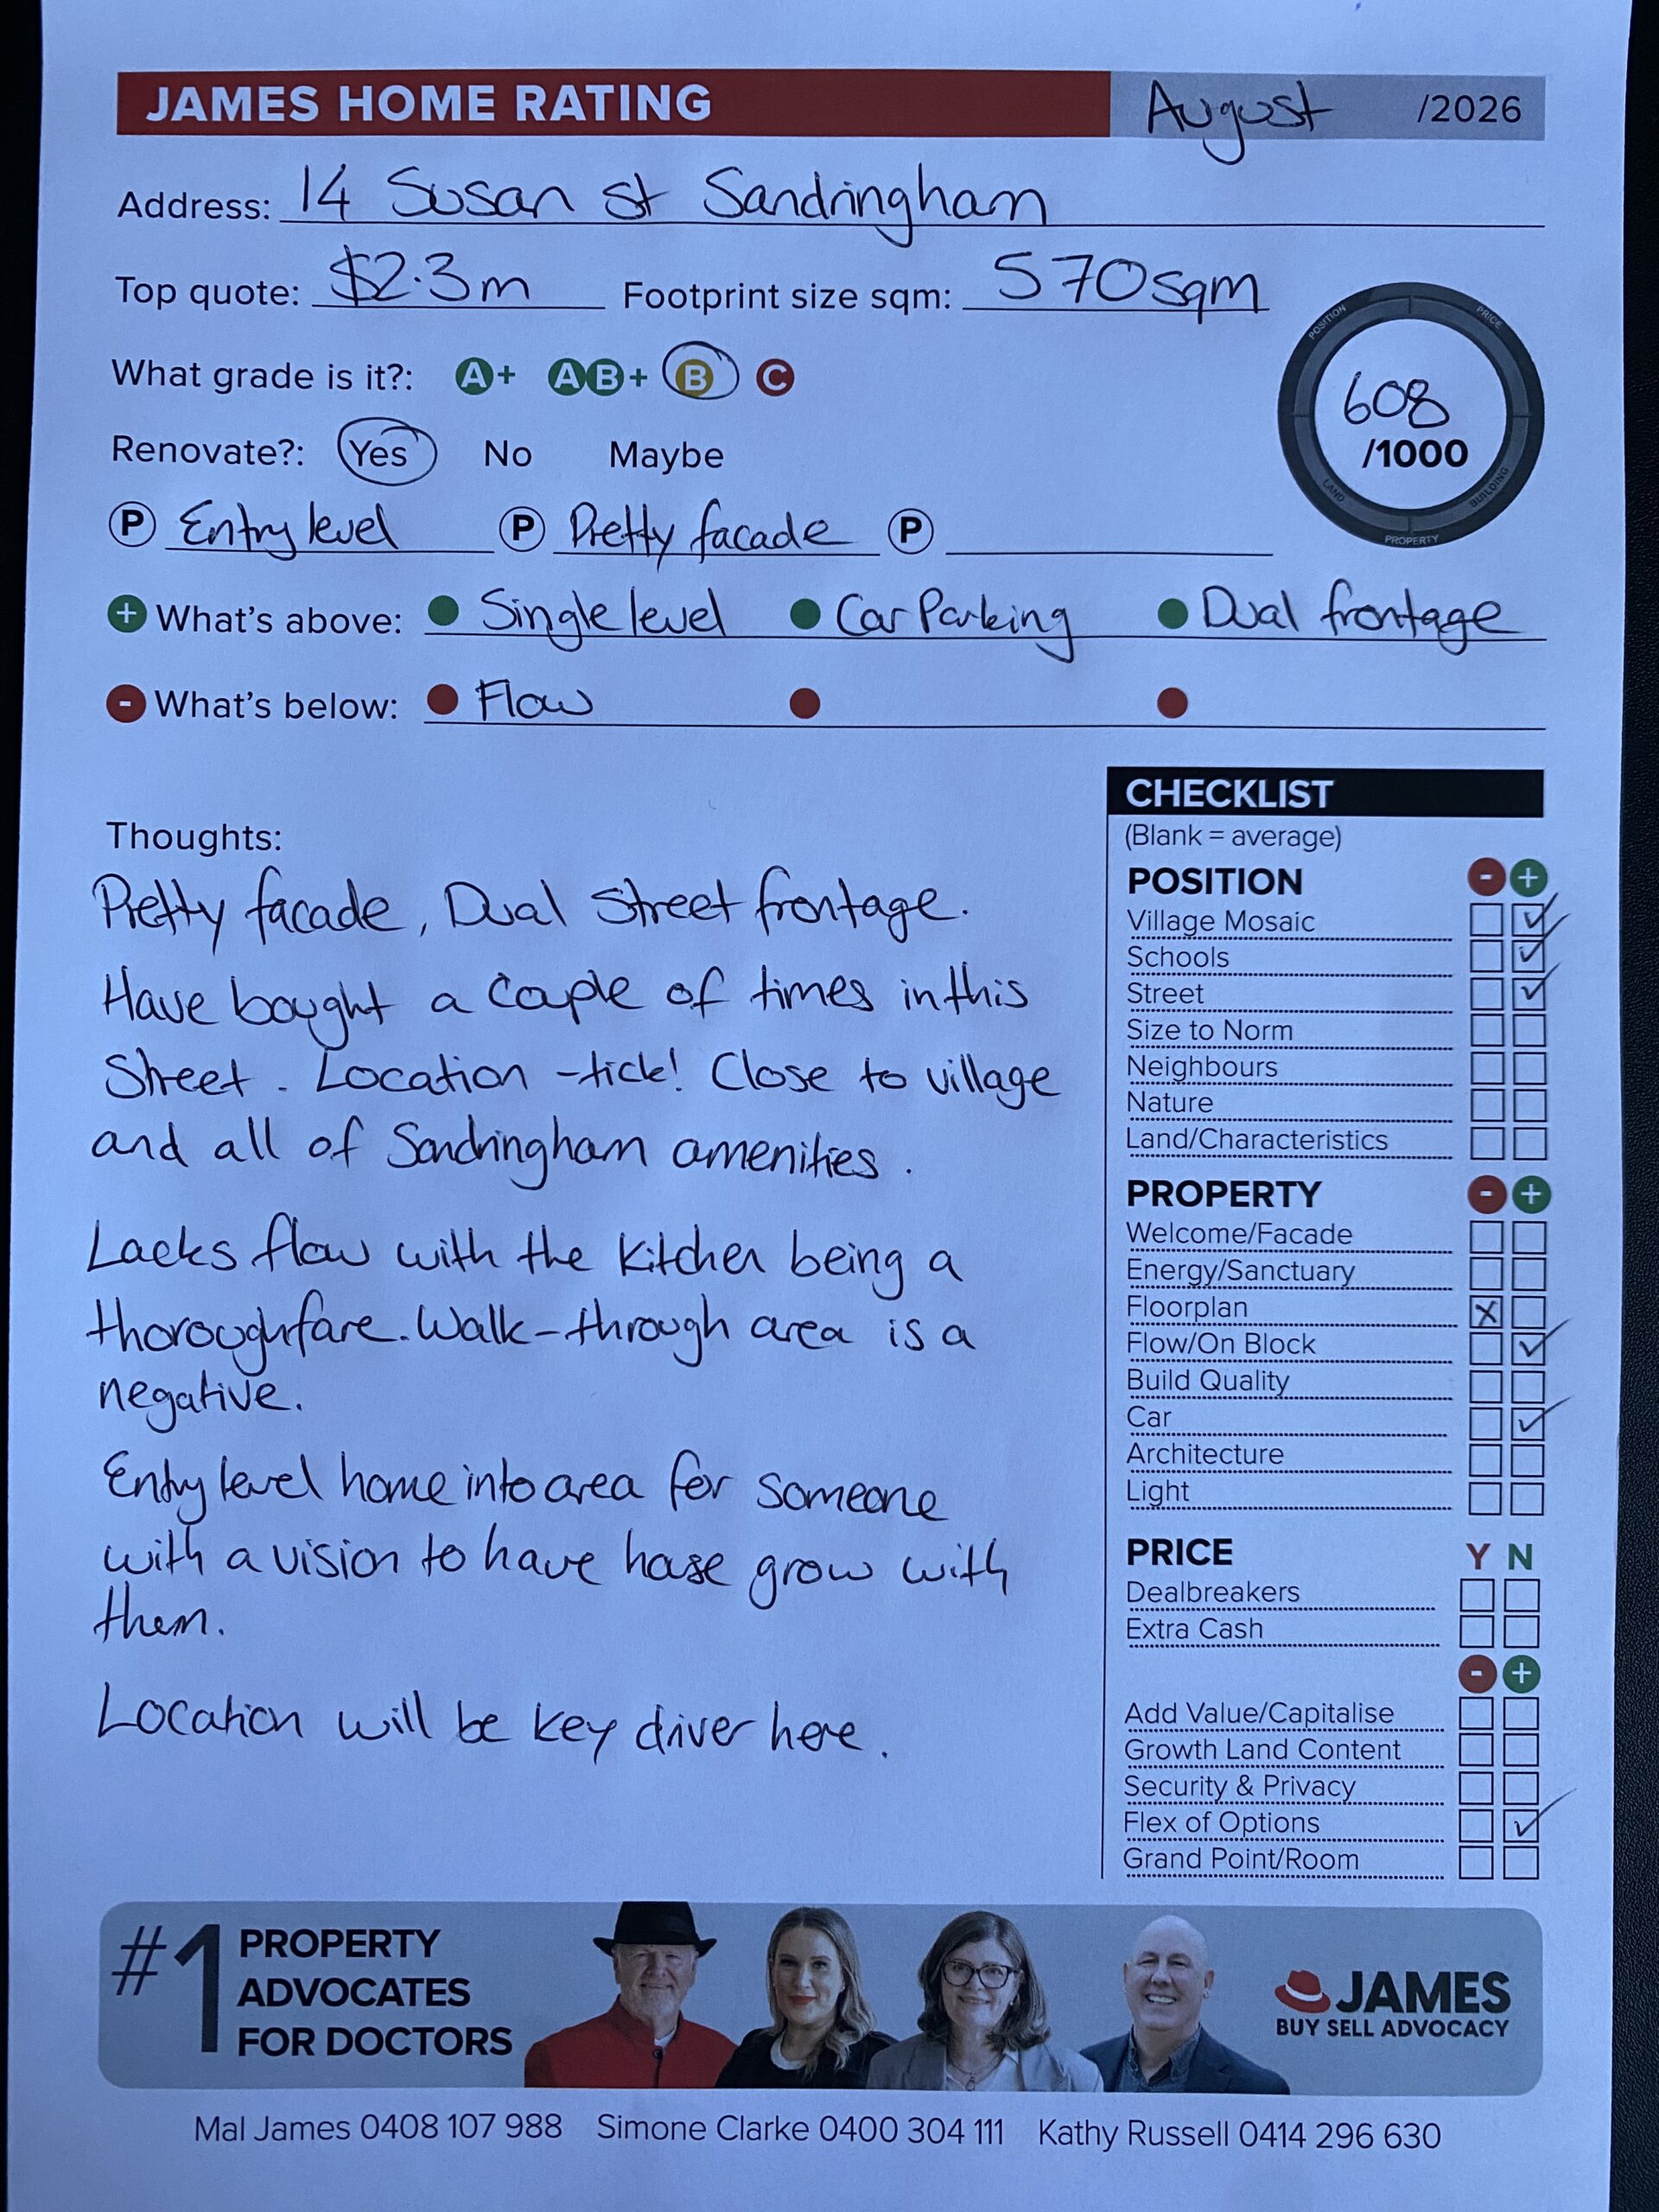 JAMES HOME RATING August /2026
Address: 14 Susan St Sandringham
Top quote: $2.3m Footprint size sqm: 570sqm
What grade is it?: A+ AB+ B C
608
/1000
POSITION PRICE BUILDING PROPERTY LAND
Renovate?: Yes No Maybe
P Entry level P Pretty facade P
+ What's above: Single level Car Parking Dual frontage
- What's below: Flow
Thoughts:
Pretty facade, Dual Street frontage.
Have bought a couple of times in this
Street. Location - tick! Close to village
and all of Sandringham amenities.
Lacks flow with the kitchen being a
thoroughfare. Walk-through area is a
negative.
Entry level home into area for someone
with a vision to have grow with
them.
Location will be key driver here.
CHECKLIST
(Blank = average)
POSITION - +
Village Mosaic ✓
Schools ✓
Street ✓
Size to Norm
Neighbours
Nature
Land/Characteristics
PROPERTY - +
Welcome/Facade
Energy/Sanctuary
Floorplan X
Flow/On Block ✓
Build Quality
Car ✓
Architecture
Light
PRICE Y N
Dealbreakers
Extra Cash
- +
Add Value/Capitalise
Growth Land Content
Security & Privacy
Flex of Options ✓
Grand Point/Room
#1 PROPERTY
ADVOCATES
FOR DOCTORS
JAMES
BUY SELL ADVOCACY
Mal James 0408 107 988 Simone Clarke 0400 304 111 Kathy Russell 0414 296 630